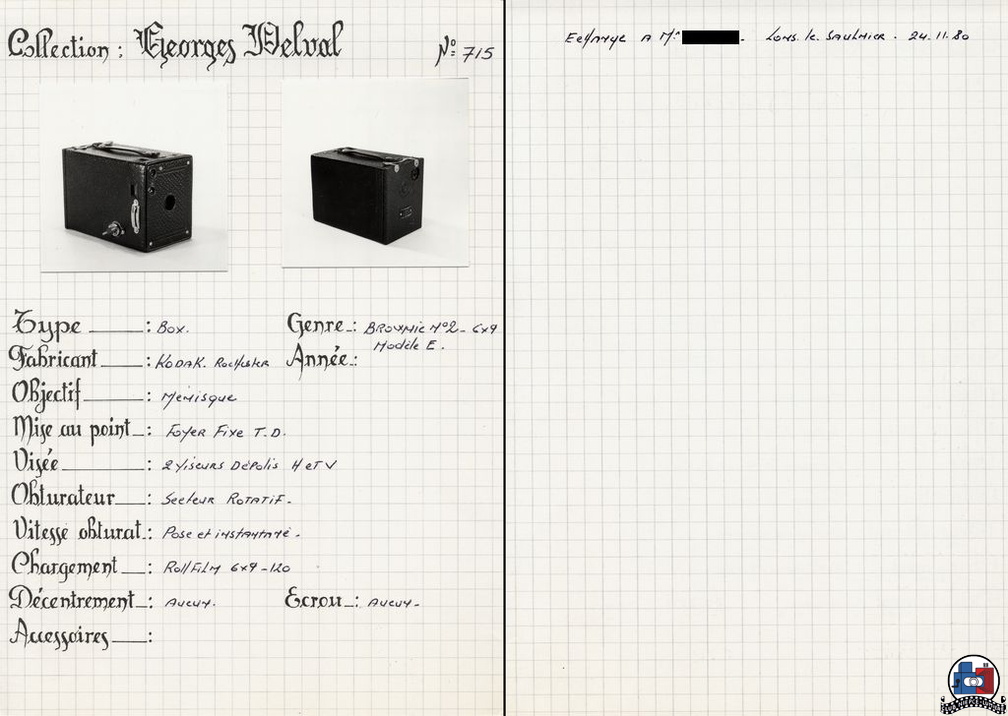 Collection : Georges Delval N° 715
Type : Box.
Genre : BROWNIE N°2 - 6x9
Modèle E.
Fabricant : KODAK. Rochester
Année :
Objectif : Ménisque
Mise au point : Foyer Fixe T.D.
Visée : 2 Viseurs Dépolis H et V
Obturateur : Secteur Rotatif.
Vitesse obturat. : Pose et instantané.
Chargement : Roll Film 6x9 - 120
Décentrement : Aucun.
Ecrou : Aucun.
Accessoires :
Echange A Mr . Lons. le. Saulnier . 24.11.80